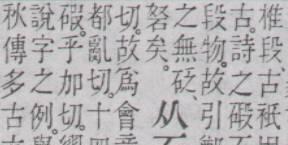 椎段、古衹
古。詩之碫
段物。故引
之無砭、
砮矣。
从
切。故爲會
都亂切。十
碬乎加切。
說字之例。
秋傳多古